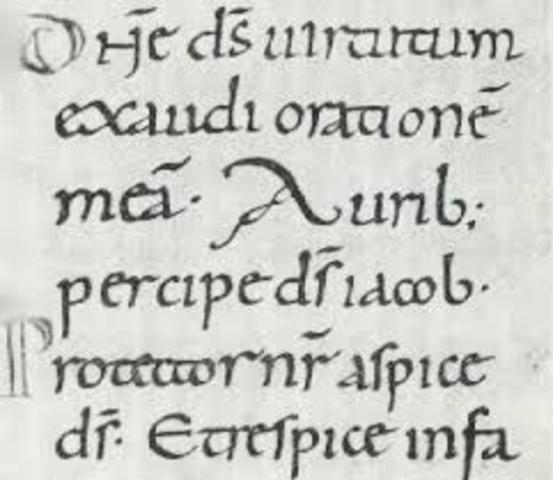 Dñe ds̄ uirtutum
exaudi orationē
meā. Aurib;
percipe ds̄ iacob.
Protector nr̄ aspice
ds̄. Et respice in fa